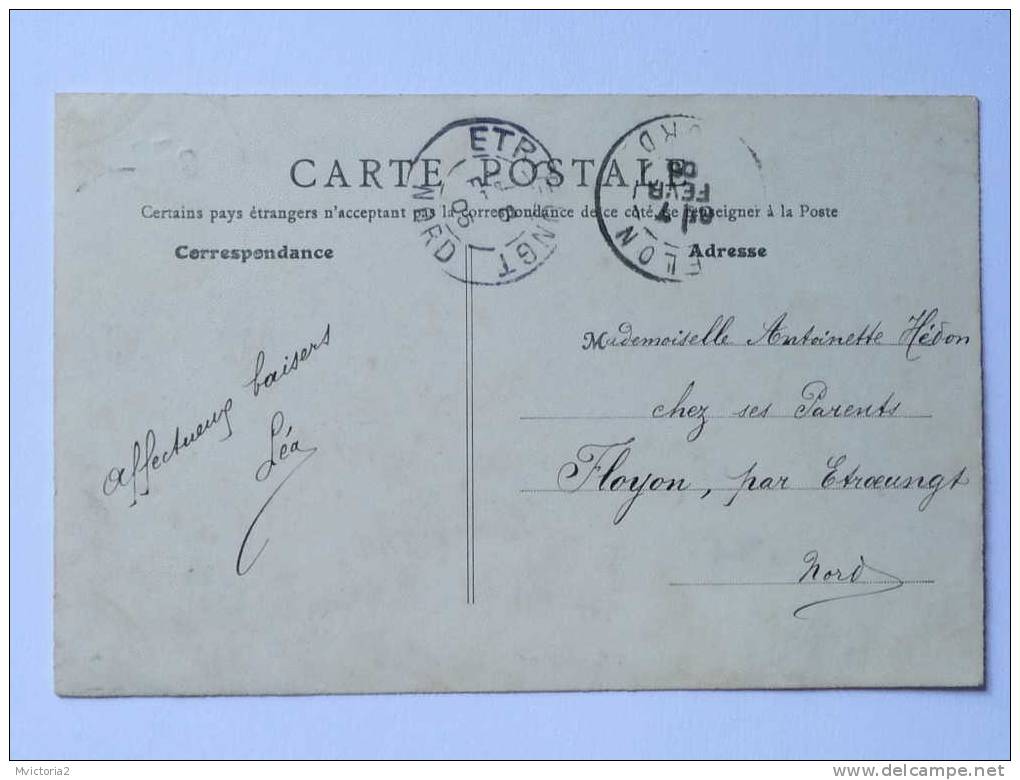 CARTE POSTALE
Certains pays étrangers n'acceptant pas la correspondance de ce côté, se renseigner à la Poste
Correspondance
Adresse
ETRŒUNGT
NORD
05
FEVR
05
NORD
Affectueux baisers
Léa
Mademoiselle Antoinette Hédon
chez ses Parents
Floyon, par Etroeungt
Nord
Mvictoria2
www.delcampe.net